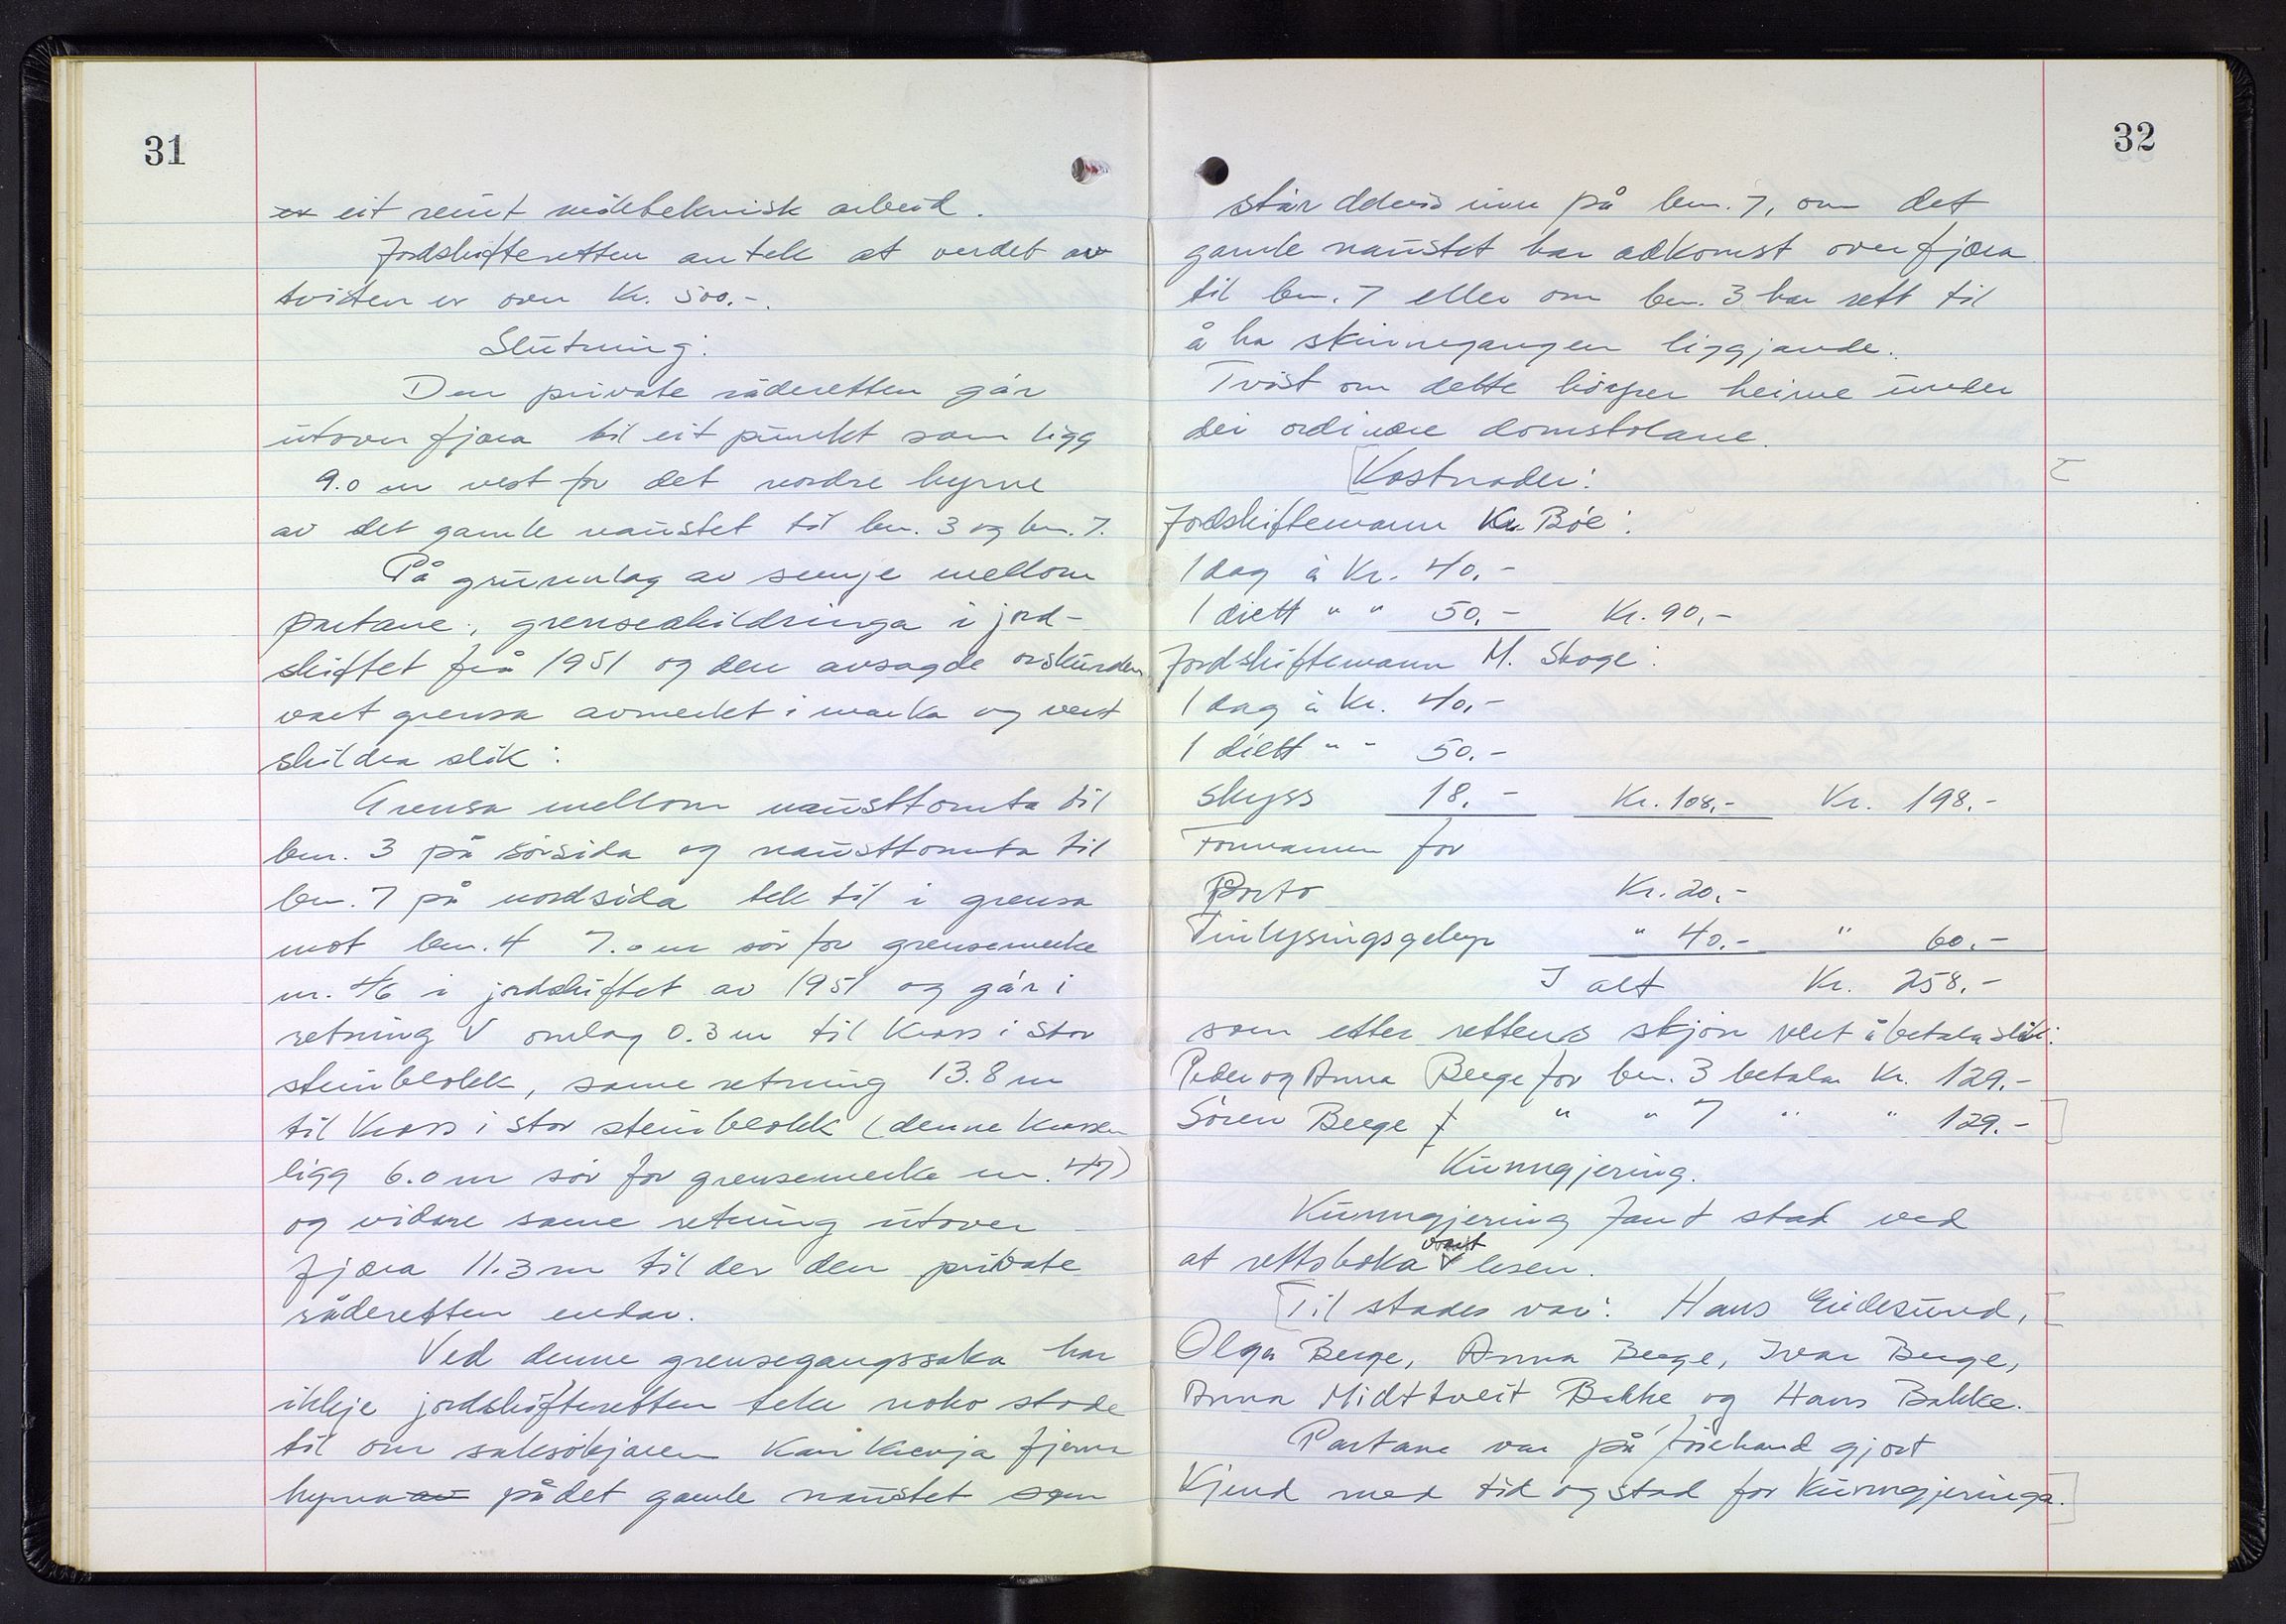 31
er eit reint måleteknisk arbeid.
Jordskifteretten antek at verdet av
tvisten er over kr. 500.-.
Slutning:
Den private råderetten går
utover fjæra til eit punkt som ligg
9.0 m vest for det nordre hyrne
av det gamle naustet til bnr. 3 og bnr. 7.
På grunnlag av semje mellom
partane, grenseskildringa i jord-
skiftet frå 1951 og den avsagde orskurden
vart grensa avmerkt i marka og vert
skildra slik:
Grensa mellom nausttomta til
bnr. 3 på sørsida og nausttomta til
bnr. 7 på nordsida tek til i grensa
mot bnr. 4 7.0 m sör for grensemerke
nr. 46 i jordskiftet av 1951 og går i
retning V omlag 0.3 m til kross i stor
steinblokk, same retning 13.8 m
til kross i stor steinblokk (denne krossen
ligg 6.0 m sör for grensemerke nr. 47)
og vidare same retning utover
fjæra 11.3 m til der den private
råderetten endar.
Ved denne grensegangssaka har
ikkje jordskifteretten teke noko stode
til om saksökjaren kan krevja fjerna
hyrna av på det gamle naustet som
32
står delvis inn på bnr. 7, om det
gamle naustet har adkomst over fjæra
til bnr. 7 eller om bnr. 3 har rett til
å ha skinnegangen liggjande.
Tvist om dette höyrer heime under
dei ordinære domstolane.
Kostnader:
Jordskiftemann Kr. Böe:
1 dag à Kr. 40.-
1 diett " " 50.- Kr. 90.-
Jordskiftemann M. Skoge:
1 dag à kr. 40.-
1 diett " " 50.-
Skyss 18.- Kr. 108.- Kr. 198.-
Formannen for
Porto Kr. 20.-
Tinlysingsgebyr " 40.- " 60.-
I alt Kr. 258.-
som etter rettens skjön vert å betala slik:
Peder og Anna Berge for bnr. 3 betalar Kr. 129.-
Sören Berge f " " 7 " " 129.-
Kunngjering.
Kunngjering fant stad ved
at rettsboka vart lesen.
Til stades var: Hans Eidesund,
Olga Berge, Anna Berge, Ivar Berge,
Anna Midttveit Bakke og Hans Bakke.
Partane var på förehand gjort
kjend med tid og stad for kunngjeringa.